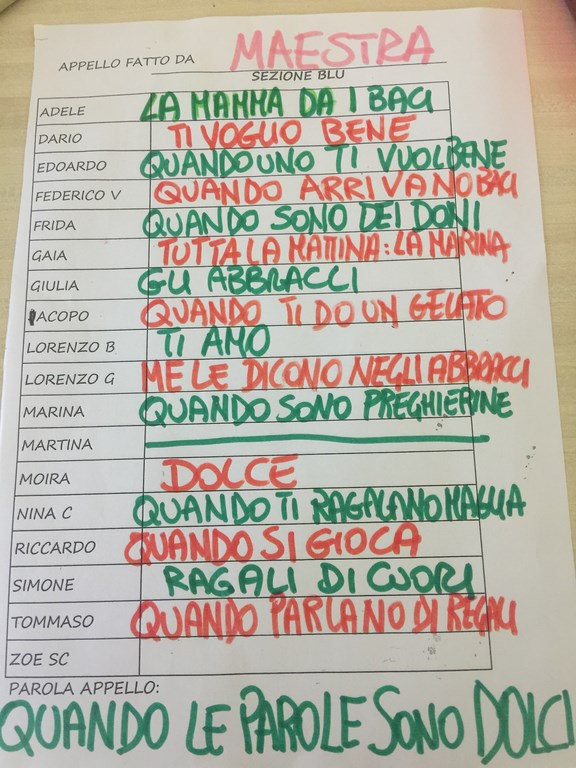 APPELLO FATTO DA MAESTRA
SEZIONE BLU
ADELE LA MAMMA DA I BACI
DARIO TI VOGLIO BENE
EDOARDO QUANDO UNO TI VUOL BENE
FEDERICO V QUANDO ARRIVANO BACI
FRIDA QUANDO SONO DEI DONI
GAIA TUTTA LA MATTINA: LA MARINA
GIULIA GLI ABBRACCI
IACOPO QUANDO TI DO UN GELATO
LORENZO B TI AMO
LORENZO G ME LE DICONO NEGLI ABBRACCI
MARINA QUANDO SONO PREGHIERINE
MARTINA
MOIRA DOLCE
NINA C QUANDO TI RAGALANO MAGLIA
RICCARDO QUANDO SI GIOCA
SIMONE RAGALI DI CUORI
TOMMASO QUANDO PARLANO DI REGALI
ZOE SC
PAROLA APPELLO:
QUANDO LE PAROLE SONO DOLCI